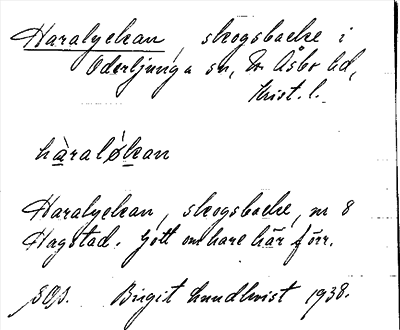 Haralyckan, skogsbacke i
Oderljunga sn, N. Åsbo hd,
Krist. l.
hàralòkan
Haralyckan, skogsbacke, m 8
Hagstad. Gott om hare här förr.
Birgit Lundkvist 1938.